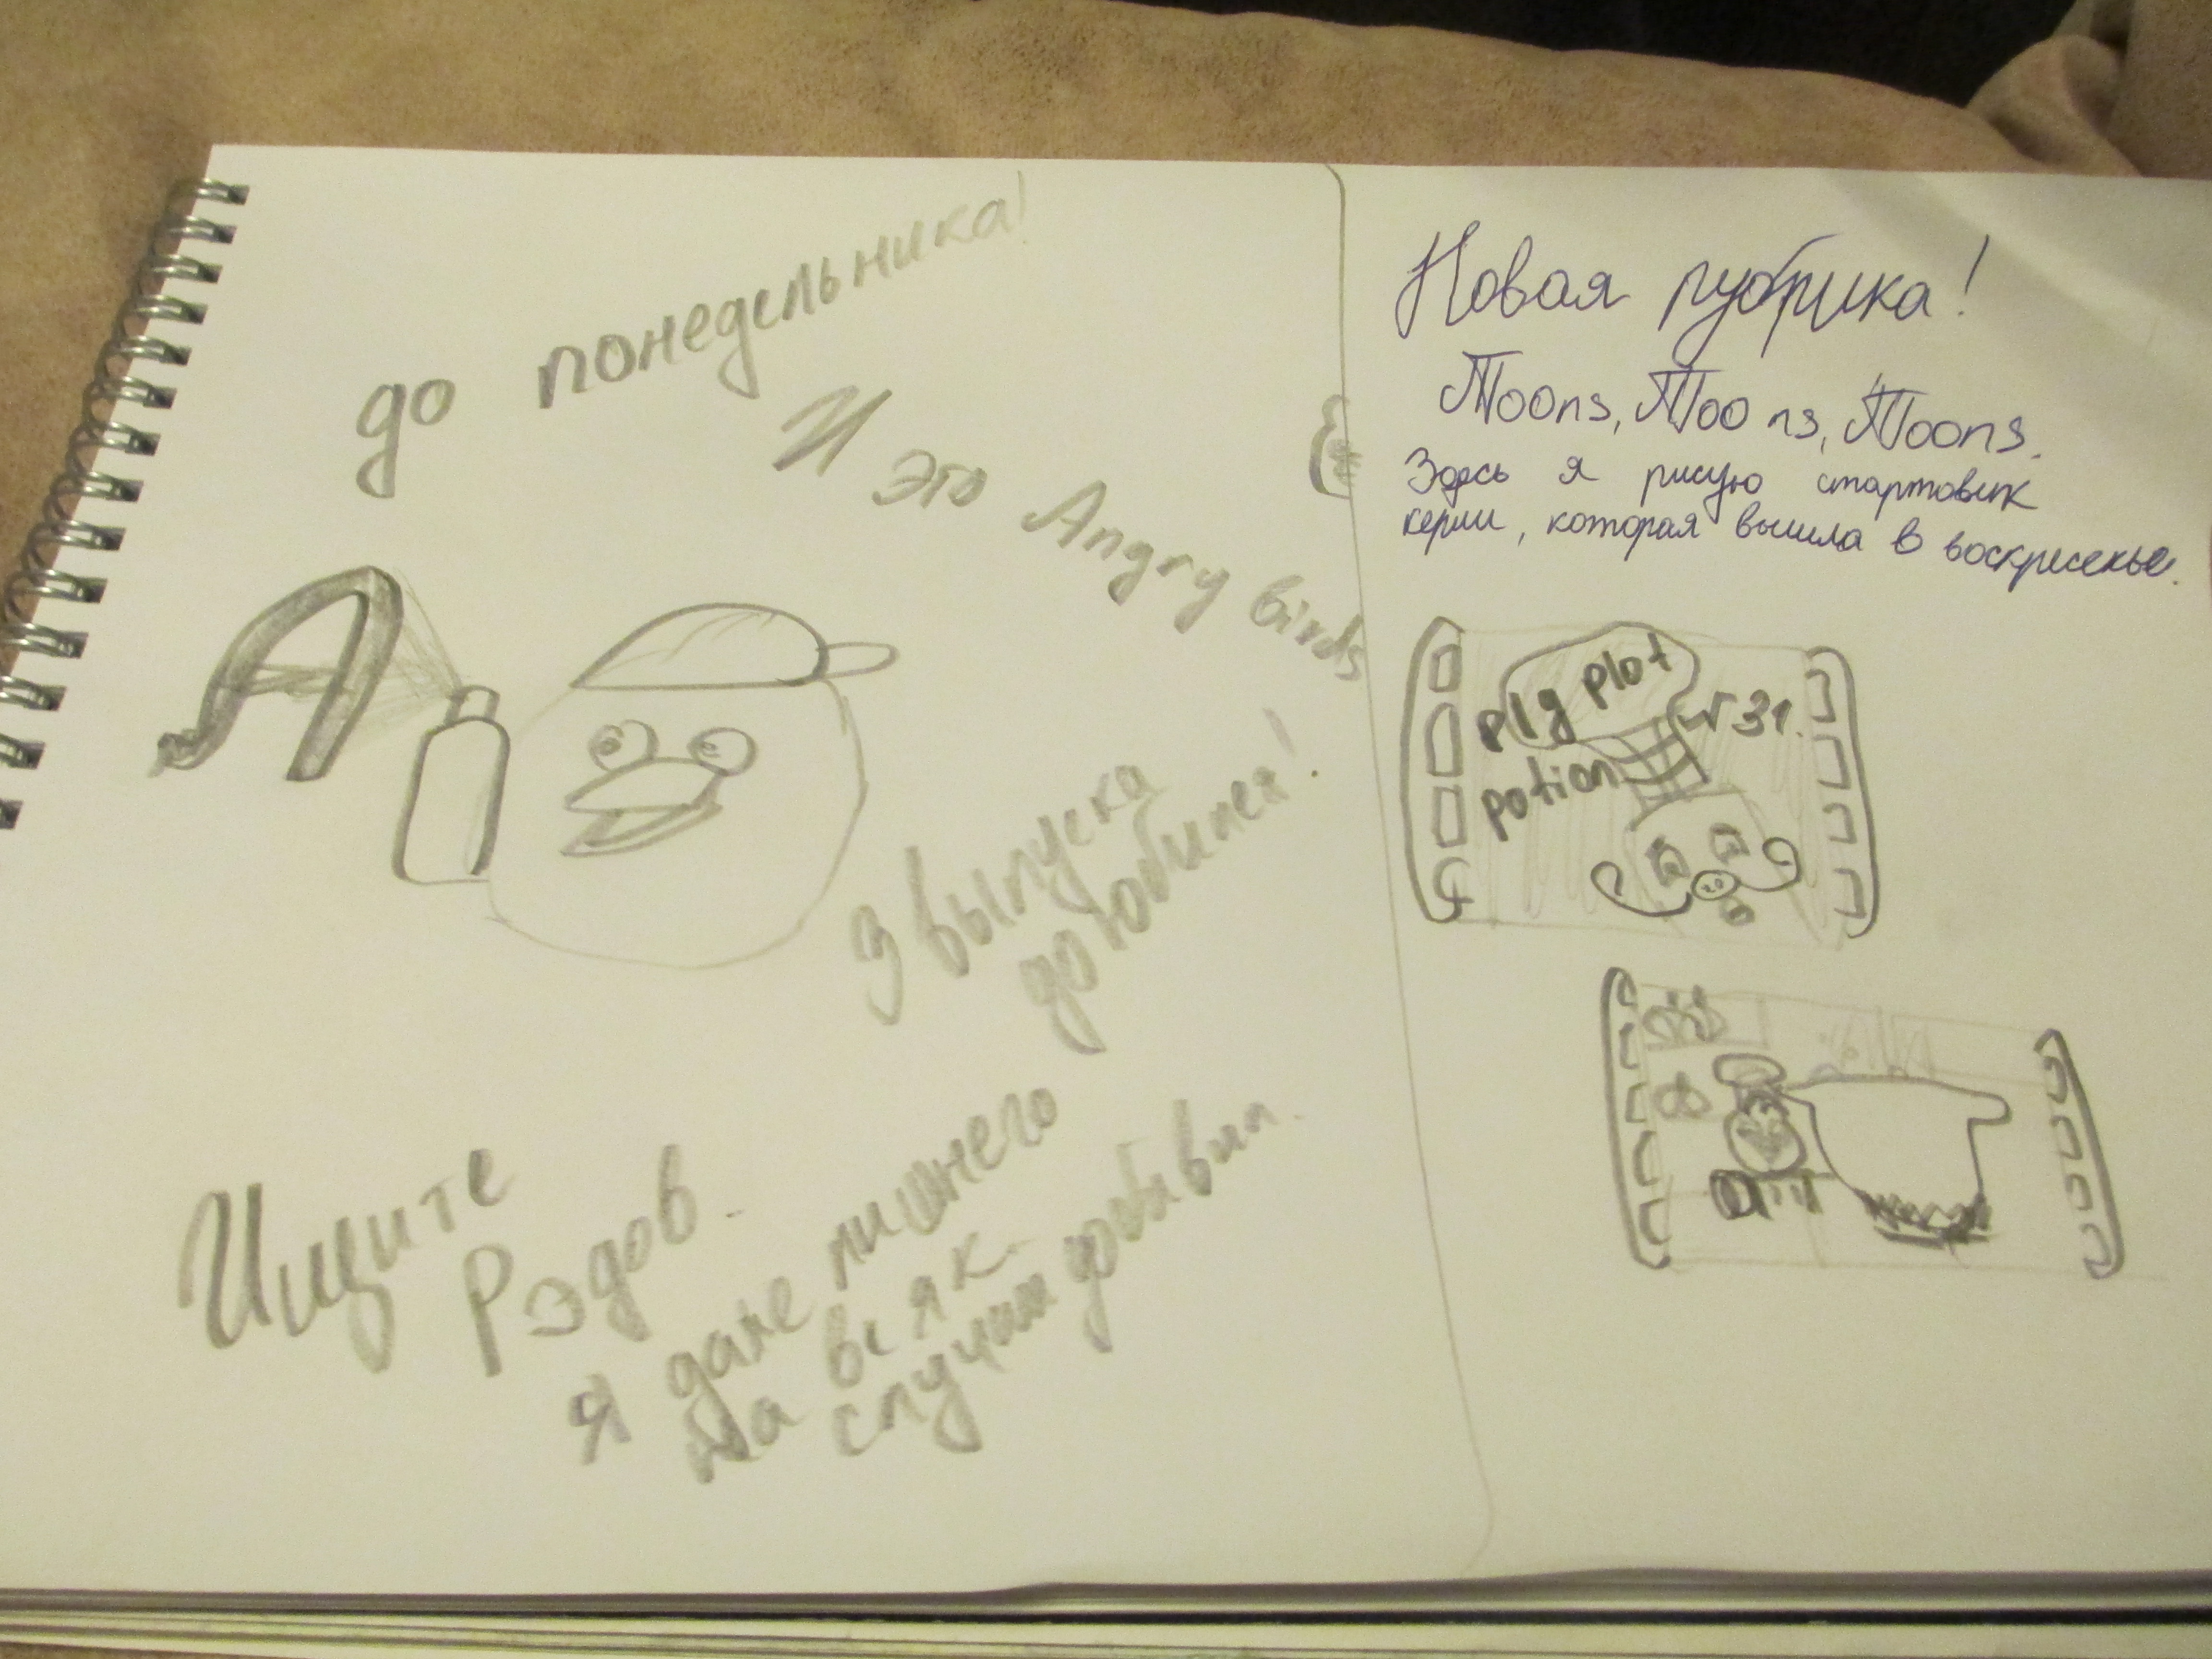 до понедельника!
И это Angry birds
А
3 выпуска
до юбилея!
Ищите
Рэдов.
Я даже лишнего
на всяк
случай добавил.
Новая рубрика!
Toons, Toons, Toons.
Здесь я рисую стартовик
серии, которая вышла в воскресенье.
pig plot
potion
№31.